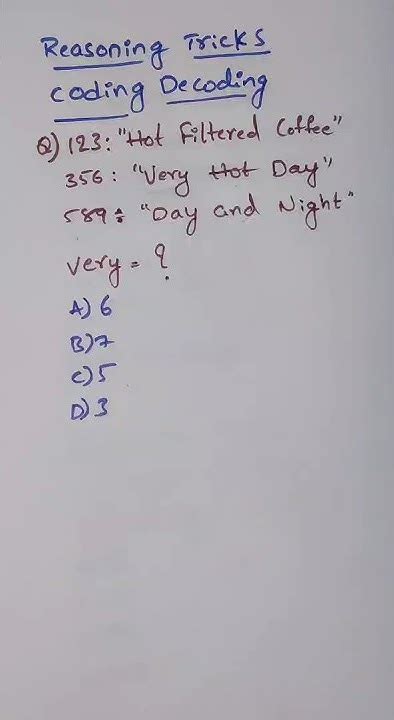 Reasoning Tricks
coding Decoding
Q) 123: "Hot Filtered Coffee"
356: "Very Hot Day"
589: "Day and Night"
very = ?
A) 6
B) 7
C) 5
D) 3